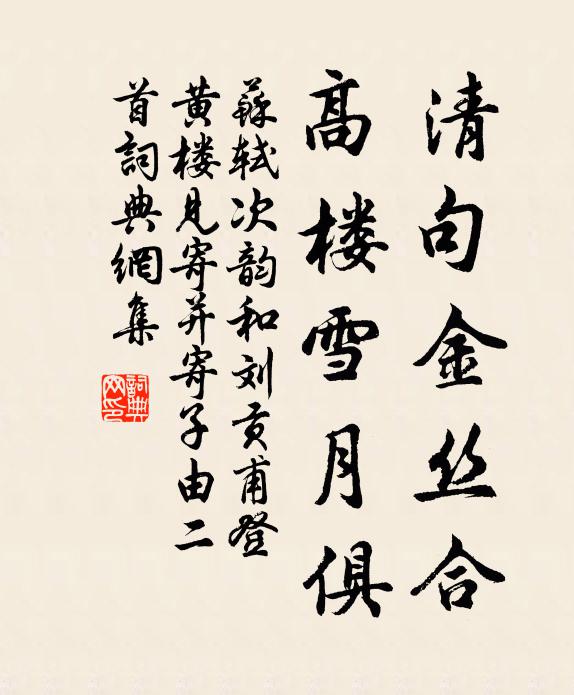 清句金丝合
高楼雪月俱
蘇軾次韵和刘贡甫登
黄楼見寄并寄子由二
首詞典網集
詞典
网印